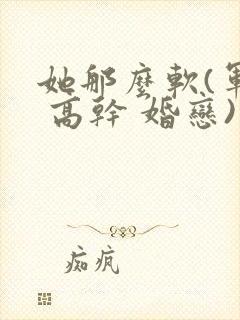 她那麼軟(軍
高幹 婚戀)
痴瘋